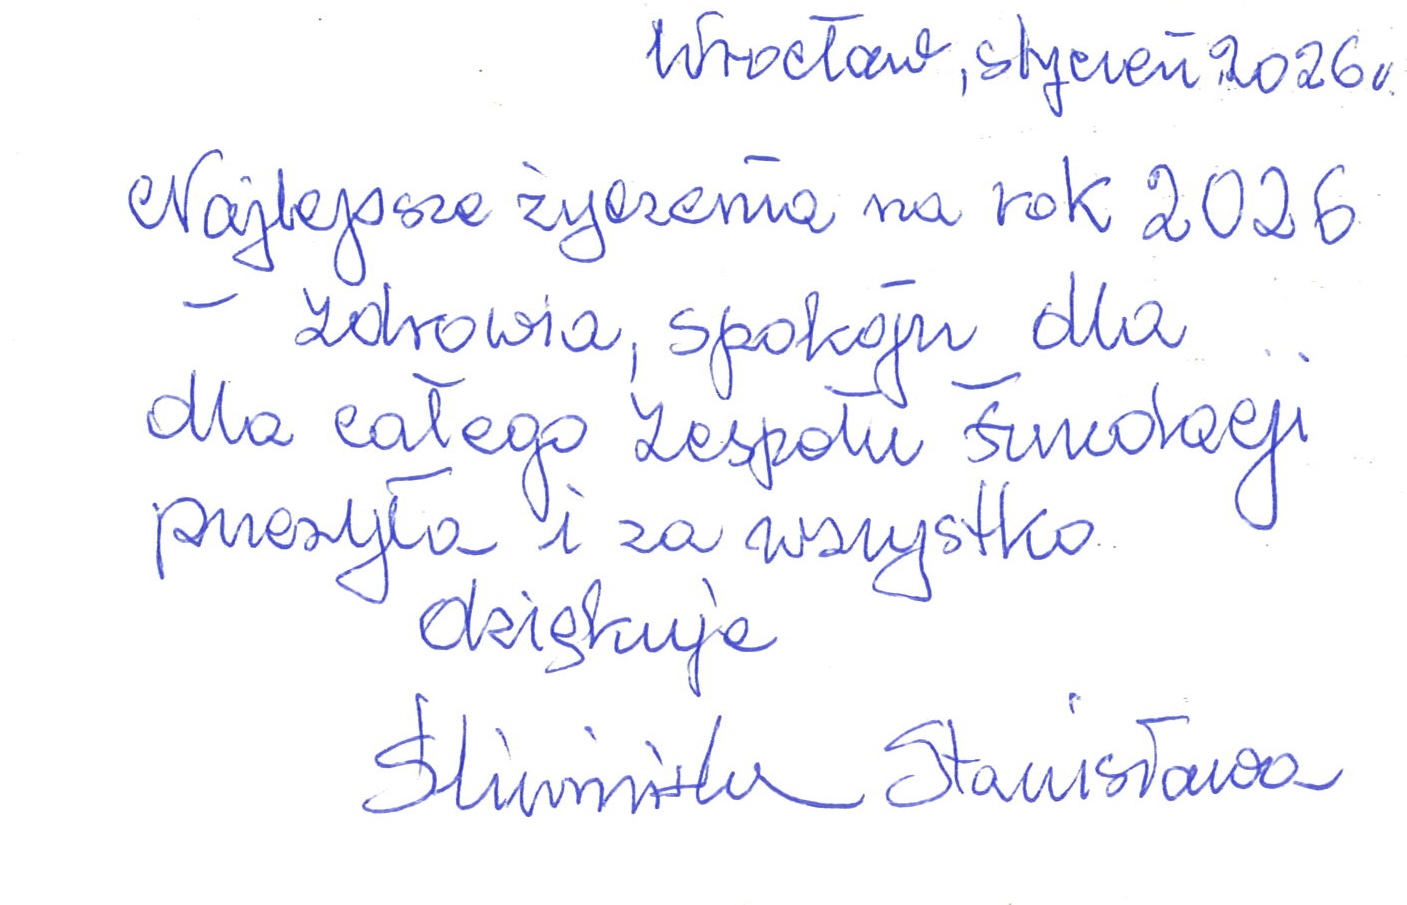 Wrocław, styczeń 2026r.
Najlepsze życzenia na rok 2026
– zdrowia, spokoju dla
dla całego zespołu Fundacji
przesyła i za wszystko
dziękuje
Stanisława